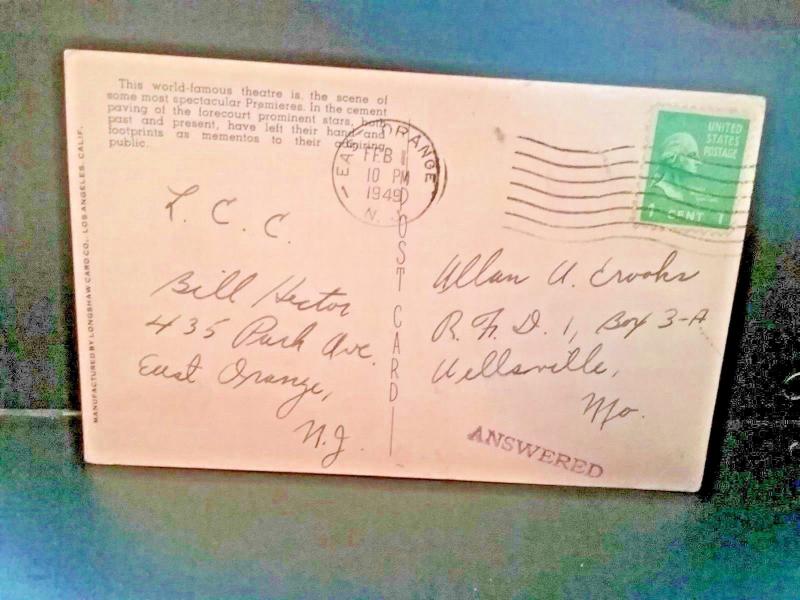 This world-famous theatre is the scene of
some most spectacular Premieres. In the cement
paving of the forecourt prominent stars, both
past and present, have left their hand and
footprints as mementos to their admiring
public.
MANUFACTURED BY LONGSHAW CARD CO., LOS ANGELES, CALIF.
EAST ORANGE
FEB
10 PM
1949
N. J.
UNITED
STATES
POSTAGE
1 CENT 1
POST CARD
L. C. C.
Bill Hector
435 Park Ave.
East Orange,
N.J.
Allan A. Crooks
R. F. D. 1, Box 3-A
Wellsville,
Mo.
ANSWERED